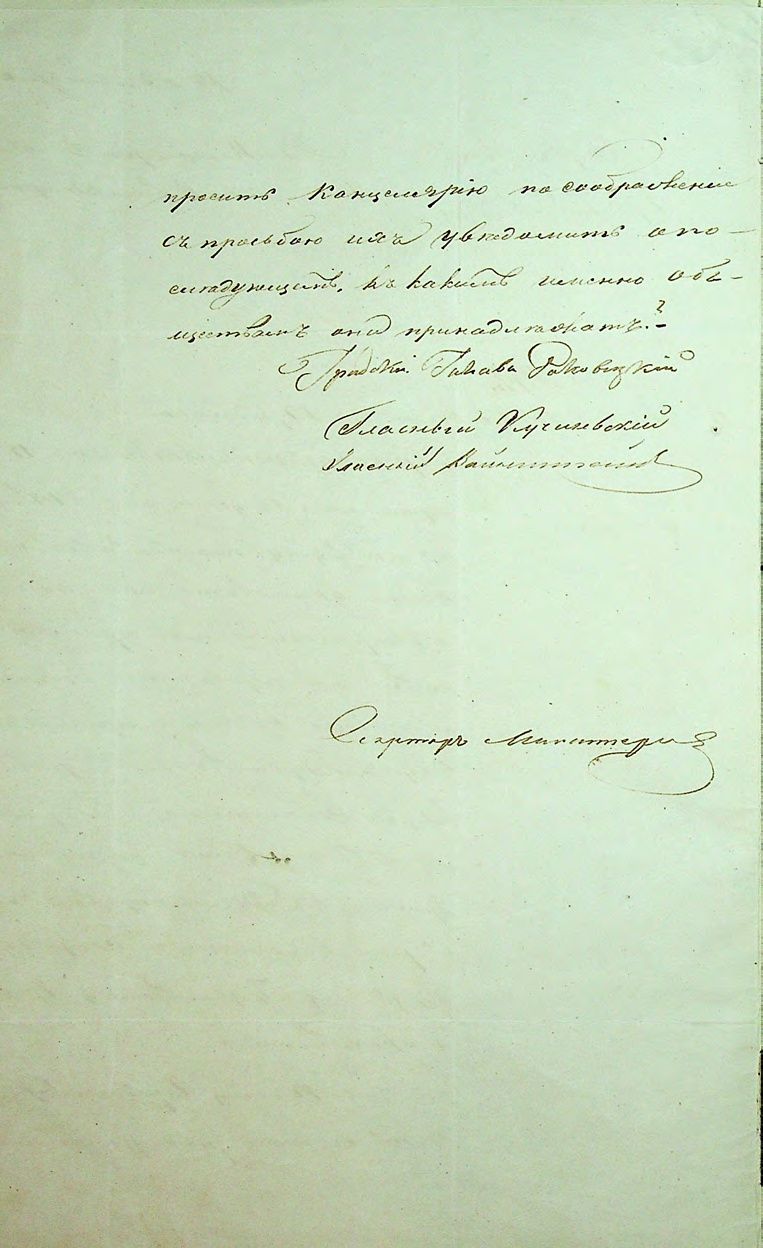 просить Канцелярію по соображеніе
съ просьбою ихъ увѣдомить о по-
слѣдующемъ, къ какимъ именно об-
ществамъ они принадлежатъ?-
Градскій Глава Раковецкій
Гласный Кучиневскій
Гласный
Секретарь